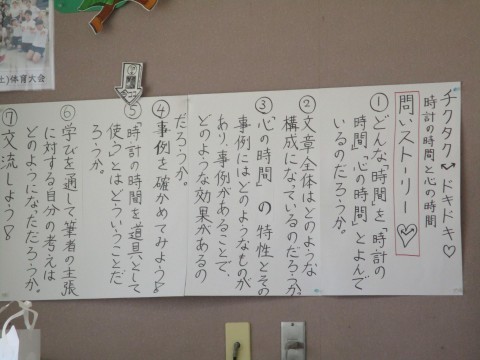 チクタク♡ドキドキ♡
時計の時間と心の時間
問いストーリー♡
①どんな「時間」を「時計の
時間」「心の時間」とよんで
いるのだろうか。
②文章全体はどのような
構成になっているのだろうか。
③「心の時間」の特性とその
事例にはどのようなものが
あり、事例があることで、
どのような効果があるの
だろうか。
④事例を確かめてみよう!
⑤「時計の時間を道具として
使う」とはどういうことだ
ろうか。
⑥学びを通して筆者の主張
に対する自分の考えは
どのようになっただろうか。
⑦交流しよう!
体育大会